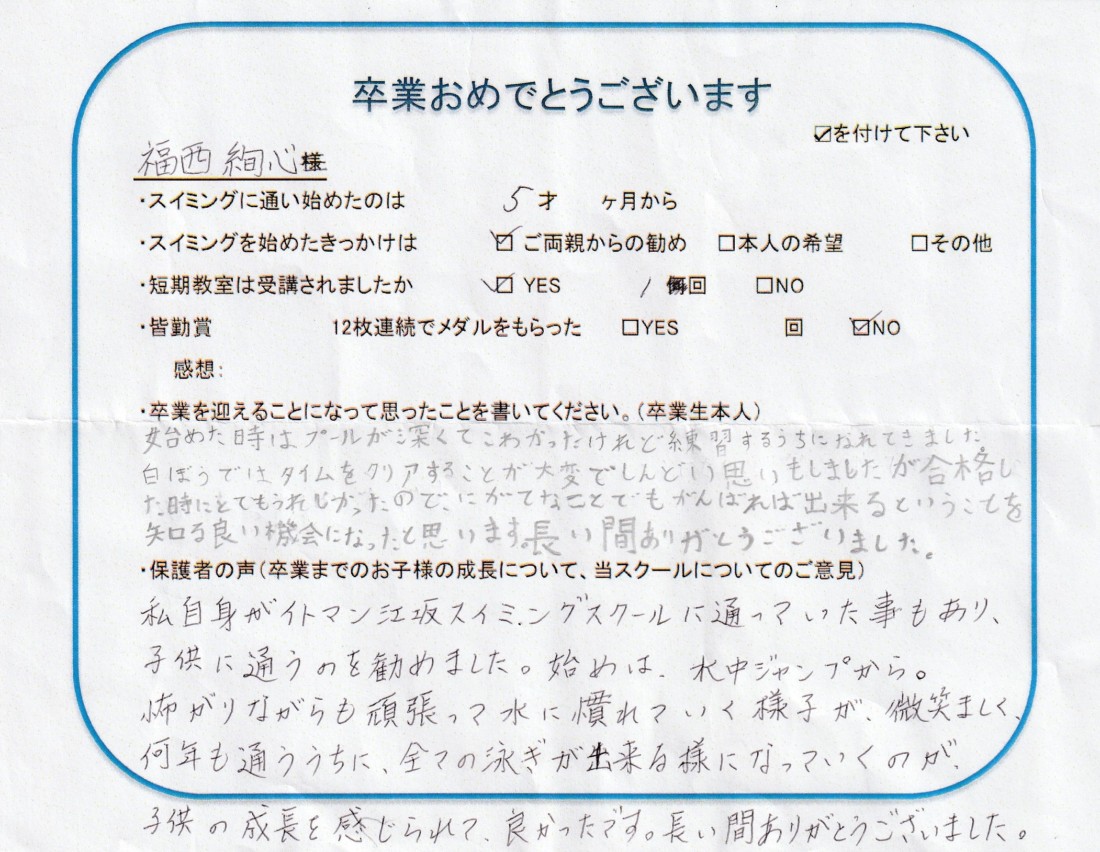 卒業おめでとうございます
☑を付けて下さい
福西 絢心様
・スイミングに通い始めたのは 5才 ヶ月から
・スイミングを始めたきっかけは ☑ご両親からの勧め □本人の希望 □その他
・短期教室は受講されましたか ☑YES / 回 □NO
・皆勤賞 12枚連続でメダルをもらった □YES 回 ☑NO
感想:
・卒業を迎えることになって思ったことを書いてください。(卒業生本人)
始めた時はプールが深くてこわかったけれど練習するうちになれてきました。
白ぼうではタイムをクリアすることが大変でしんどい思いもしましたが合格し
た時にとてもうれしかったので、にがてなことでもがんばれば出来るということを
知る良い機会になったと思います。長い間ありがとうございました。
・保護者の声(卒業までのお子様の成長について、当スクールについてのご意見)
私自身がイトマン江坂スイミングスクールに通っていた事もあり、
子供に通うのを勧めました。始めは、水中ジャンプから。
怖がりながらも頑張って水に慣れていく様子が、微笑ましく、
何年も通ううちに、全ての泳ぎが出来る様になっていくのが、
子供の成長を感じられて、良かったです。長い間ありがとうございました。